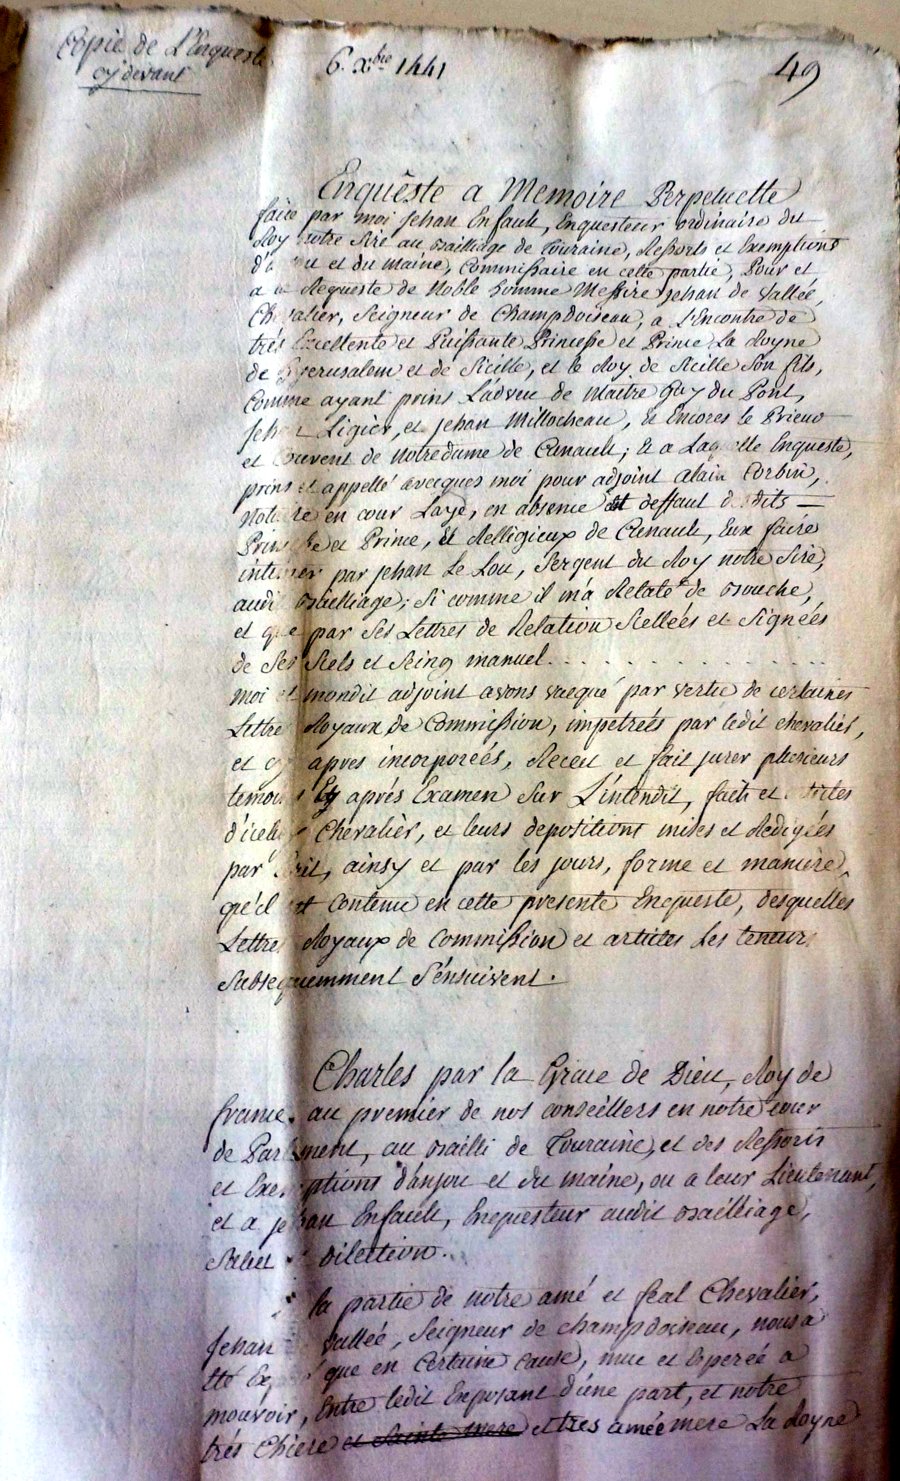 Copie de L'Enqueste
cy devant
6. Xbre 1441
49
Enquêste a Memoire Perpetuelle
faite par moi Jehan Enfault, Enquesteur ordinaire du
Roy notre Sire au Bailliage de Touraine, Ressorts et Exemptions
et du Maine, Commissaire en cette partie, Pour et
a Requeste de Noble homme Messire Jehan de Vallée,
Chevalier, Seigneur de Champdoiseau, a L'Encontre de
très Excellente et Puissante Princesse et Prince La Royne
de Jerusalem et de Sicille, et le Roy de Sicille Son fils,
Comme ayant prins L'adveu de Maitre Guy du Pont,
Jehan Ligier, et Jehan Millocheau, et Encores le Prieur
et Couvent de Notre dame de Cunault; et a Laquelle Enqueste,
prins et appellé avecques moi pour adjoint alain Corbin,
Notaire en cour Laye, en absence et deffaut desdits
Princesse et Prince, et Relligieux de Cunault, Eux faire
intimer par Jehan Le Lou, Sergent du Roy notre Sire,
audit Bailliage; Si comme il m'a Relaté de bouche,
et que par Ses Lettres de Relation Scellées et Signées
de Ses Scels et Seing manuel. . . . . . . . . . . . . . . . .
Moi et mondit adjoint avons vacqué par vertu de certaines
Lettres Royaux de Commission, impetreés par ledit chevalier,
et cy apres incorporeés, Receu et fait jurer plusieurs
temoins aprés Examen Sur L'intendit, faits et articles
d'icelui Chevalier, et leurs depositions mises et Redigées
par Ecrit, ainsy et par les jours, forme et maniere,
qu'il est Contenu en cette presente Enqueste, desquelles
Lettres Royaux de Commission et articles Les teneurs
Subsequemment S'énsuivent.
Charles par la Grace de Dieu, Roy de
france. au premier de nos conseillers en notre cour
de Parlement, au Bailli de Touraine, et des Ressorts
et Exemptions d'anjou et du maine, ou a leur Lieutenant,
et a Jehan Enfault, Enquesteur audit Bailliage,
Salut et dilection.
la partie de notre amé et feal Chevalier,
Jehan de Vallée, Seigneur de champdoiseau, nous a
été Exposé que en Certaine Cause, mue et Esperée a
mouvoir, Entre ledit Exposant d'une part, et notre
trés Chiere et Sainte Mere et tres améé mere La Royne